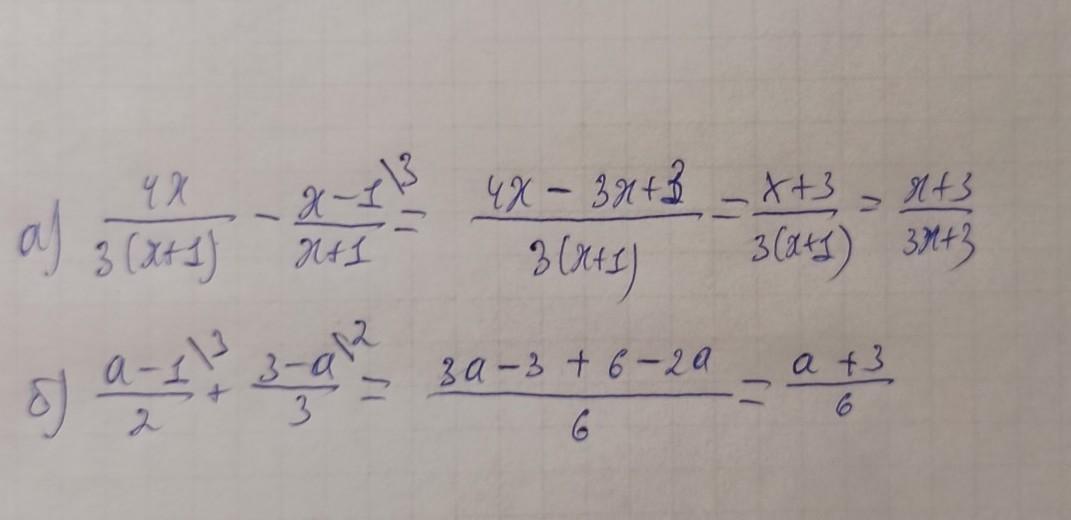 а) 4x/3(x+1) - x-1\3/x+1 = 4x - 3x+3/3(x+1) = x+3/3(x+1) = x+3/3x+3
б) a-1\3/2 + 3-a\2/3 = 3a-3+6-2a/6 = a+3/6